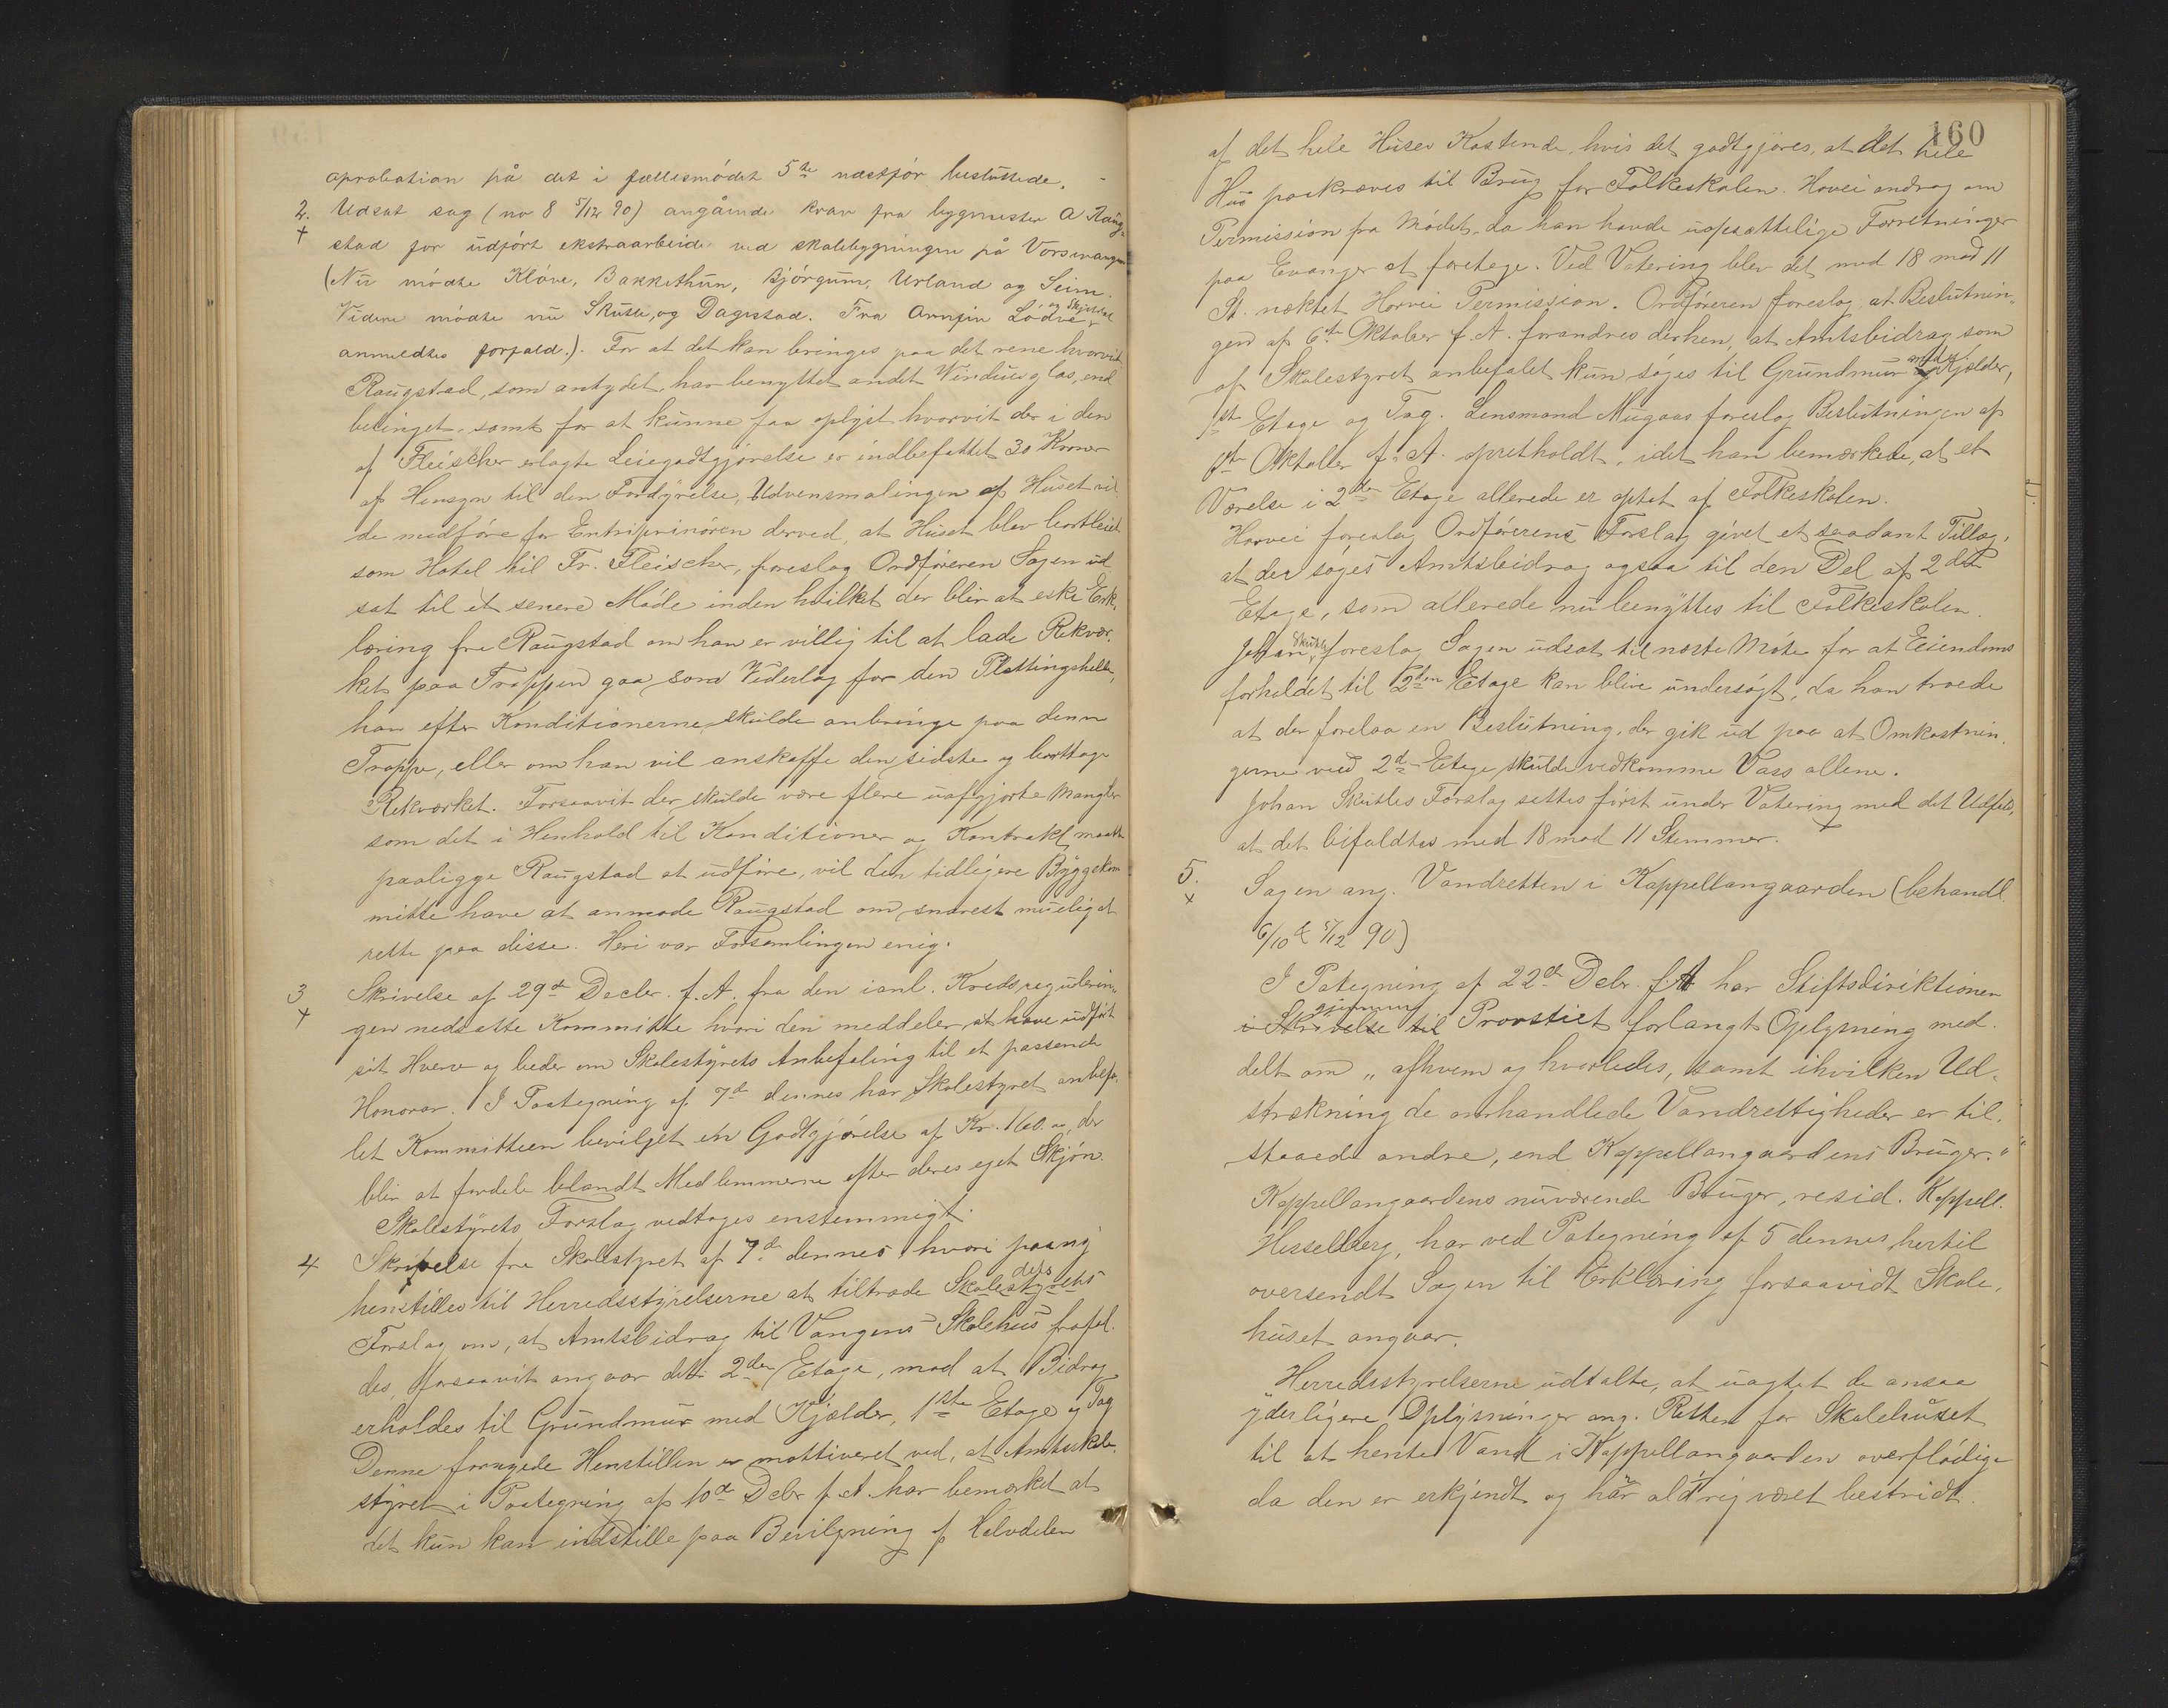 aprobation på det i fællesmödet 5te næstfór besluttede. -
2. Udsat sag (no 8 5/12 90) angående krav fra bygmester A Raug-
+ stad for udfört ekstraarbeide ved skolebygningen på Vossevangen
(Nu mödte Klöve, Bakkethun, Björgum, Urland og Seim.
Videre mödte nu Skutle, og Dagestad. Fra Arnfin Lödve og Skjeldal
anmeldtes forfald.). For at det kan bringes paa det rene hvorvit
Raugstad, som antydet, har benyttet andet Vinduesglas, end
betinget, samt for at kunne faa oplyst hvorvit der i den
af Fleischer erlagte Leiegodtgjörelse er indbefattet 30 Kroner
af Hensyn til den Fordyrelse, Udvensmalingen af Huset vil
de medföre for Entreprinören derved, at Huset blev bortleiet
som Hotel til Fr. Fleischer, foreslog Ordföreren Sagen ud
sat til et senere Möde inden hvilket der blir at eske Erk,
læring fra Raugstad om han er villig til at lade Rekvær,
ket paa Trappen gaa som Vederlag for den Plattingshelle,
han efter Konditionerne skulde anbringe paa denne
Trappe, eller om han vil anskaffe den sidste og borttage
Rekværket. Forsaavit der skulde være flere uafgjorte Mangler
som det i Henhold til Konditioner og Kontrakt maatte
paaligge Raugstad at udföre, vil den tidligere Byggekom
mitte have at anmode Raugstad om snarest mueligt at
rette paa disse. Heri var Forsamlingen enig.
3 Skrivelse af 29de Decbr. f. A. fra den ianl. Kredsregulerin,
+ gen nedsatte Kommitte hvori den meddeler at have udfört
sit Hverv og beder om Skolestyrets Anbefaling til et passende
Honorar. I Paategning af 7de dennes har Skolestyret anbefa,
let Kommitteen bevilget en Godtgjörelse af Kr. 160.00, der
blir at fordele blandt Medlemmerne efter deres eget Skjön.
Skolestyrets Forslag vedtages enstemmigt.
4 Skrivelse fra Skolestyret af 7de dennes hvori paany
henstilles til Herredsstyrelserne at tiltræde Skolestyrets dets
Forslag om, at Amtsbidrag til Vangens Skolehus frafal.
des, forsaavit angaar dets 2den Etage, mod at Bidrag
erholdes til Grundmur med Kjælder, 1ste Etage og Tag
Denne fornyede Henstillen er mottiveret ved, at Amtsskole,
styret i Paategning af 10de Debr f. A. har bemærket at
det kun kan indstille paa Bevilgning af Halvdelen
160
af det hele Huses Kostende, hvis det godtgjöres, at det hele
Hus paakræves til Brug for Folkeskolen. Horvei androg om
Permission fra Mödet, da han havde uopsættelige Forretninger
paa Evanger at foretage. Ved Votering blev det med 18 mod 11
St. nektet Horvei Permission. Ordföreren foreslog, at Beslutnin,
gen af 6te Oktober f. A. forandres derhen, at Amtsbidrag som
af Skolestyret anbefalet kun söges til Grundmur med Kjælder,
1ste Etage og Tag. Lensmand Mugaas foreslog Beslutningen af
6te Oktober f. A. opretholdt, idet han bemærkede, at et
Værelse i 2den Etage allerede er optat af Folkeskolen.
Horvei foreslog Ordförerens Forslag givet et saadant Tillæg,
at der söges Amtsbidrag ogsaa til den Del af 2den
Etage, som allerede nu benyttes til Folkeskolen.
Johan Skutle foreslog Sagen udsat til næste Möte for at Eiendoms
forholdet til 2den Etage kan blive undersögt, da han troede
at der forelaa en Beslutning, der gik ud paa at Omkostnin,
gerne ved 2d Etage skulde vedkomme Vass allene.
Johan Skutles Forslag settes först under Votering med det Udfald,
at det bifaldtes med 18 mod 11 Stemmer.
5. Sagen ang. Vandretten i Kappellangaarden (behandl.
x 6/10 & 5/12 90)
I Pategning af 22de Debr. f. A har Stiftsdirektionen
i Skrivelse til Provstiet forlangt Oplysning med.
delt om „afhvem og hvorledes, samt ihvilken Ud-
strækning de omhandlede Vandrettigheder er til.
staaede andre, end Kappellangaardens Bruger."
Kappellangaardens nuværende Bruger, resid. Kappell.
Hesselberg, har ved Pategning af 5 dennes hertil
oversendt Sagen til Erklæring forsaavidt Skole,
huset angaar.
Herredsstyrelserne udtalte, at uagtet de ansaa
yderligere Oplysninger ang. Retten for Skolehuset
til at hente Vand i Kappellangaarden overflödige
da den er erkjendt og har aldrig været bestridt.